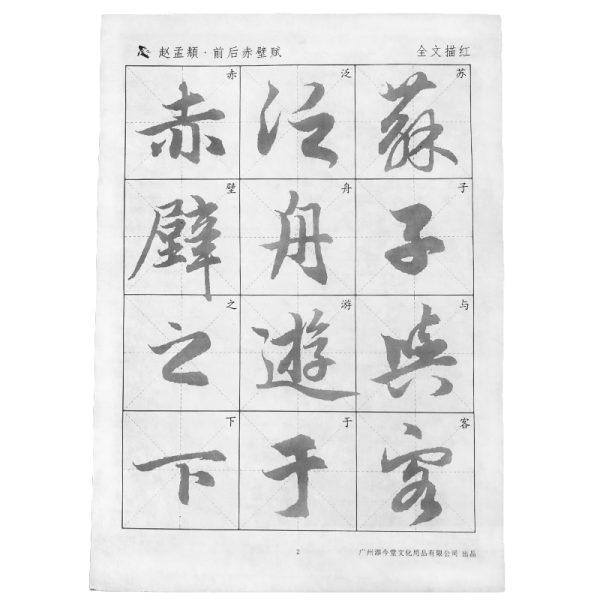 赵孟頫·前后赤壁赋
全文描红
蘇 苏
子 子
與 与
客 客
泛 泛
舟 舟
遊 游
于 于
赤 赤
壁 壁
之 之
下 下
2
文化用品有限公司 出品